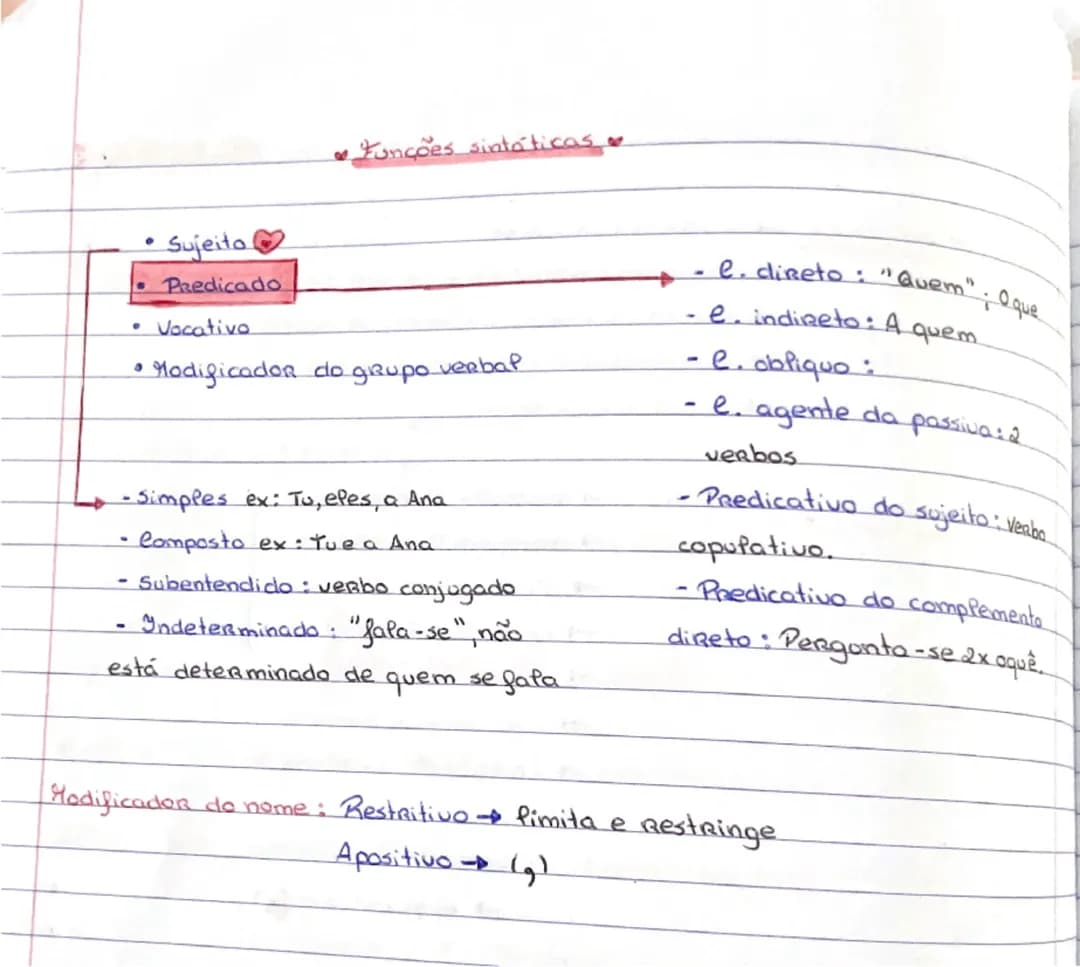 Funções sintáticas
• Sujeito
• Predicado
• Vocativo
• Modificador do grupo verbal
- Simples ex: Tu, eles, a Ana
- Composto ex: Tu e a Ana
- Subentendido: verbo conjugado
- Indeterminado: "fala-se", não
está determinado de quem se fala
- C. direto: "Quem"; O que
- C. indireto: A quem
- C. oblíquo:
- C. agente da passiva: 2
verbos
- Predicativo do sujeito: Verbo
copulativo.
- Predicativo do complemento
direto: Pergunta-se 2x oquê.
Modificador do nome: Restritivo → limita e restringe
Apositivo → (,)